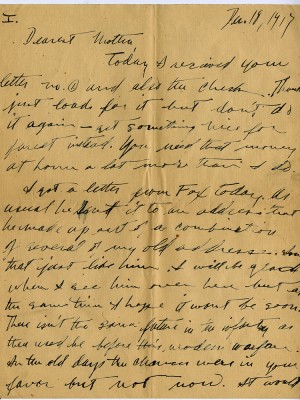 I.
Dec. 18, 1917
Dearest Mother,
Today I recieved your
letter no. 6 and also the check. Thanks
just loads for it but don't do
it again – get something nice for
yourself instead. You need that money
at home a lot more than I do.
I got a letter from Fox today. As
usual he sent it to an address that
he made up out of a combination
of several of my old addresses.
that just like him. I will be glad
when I see him over here but at
the same time I hope it wont be soon.
There isn't the same future in the infantry as
there used be before this modern warfare.
In the old days the chances were in your
favor but not now. It would